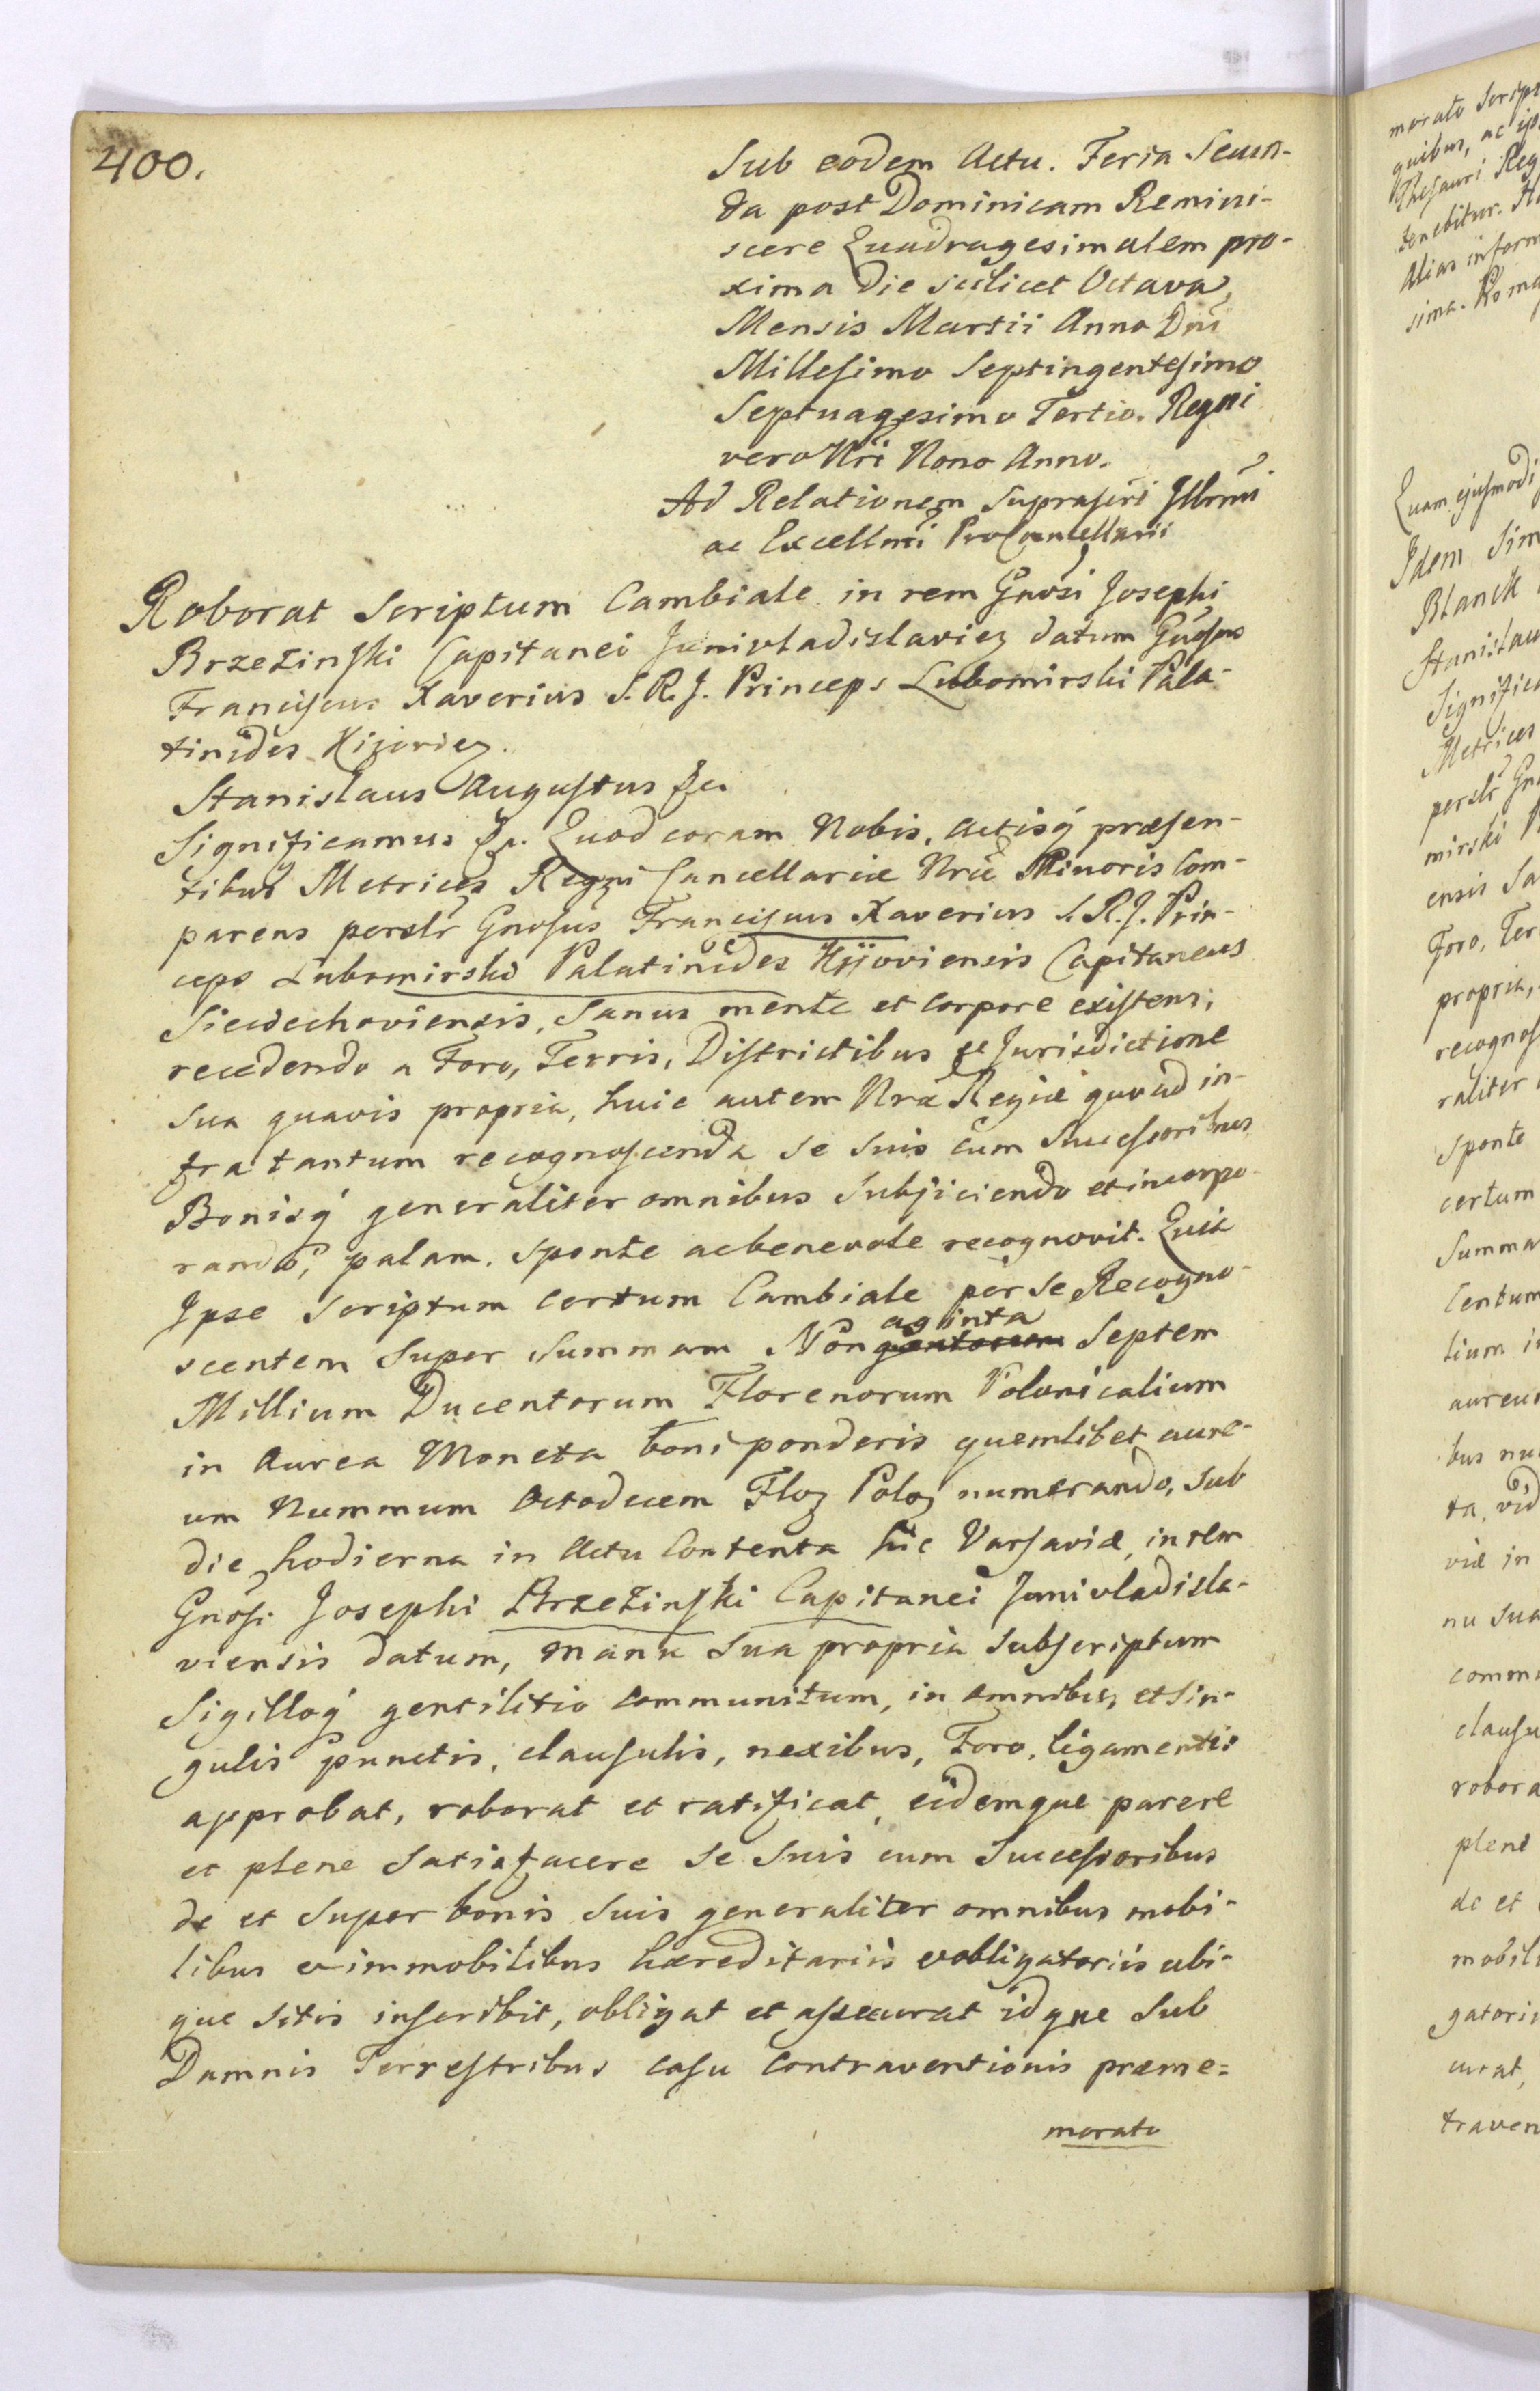 400.
Sub eodem Actu. Feria Secun-
da post Dominicam Remini-
scere Quadragesimalem pro-
xima die scilicet Octava
Mensis Martii Anno Dni
Millesimo Septingentesimo
Septuagesimo Tertio. Regni
vero Nri Nono Anno.
Ad Relationem suprascri Illrmi
ac Excellmi ProCancellarii
Roborat Scriptum Cambiale in rem Gnosi Josephi
Brzezinski Capitanei Junivladislavien datum Gnosus
Franciscus Xaverius S. R. J. Princeps Lubomirski Pala-
tinides Kijovien.
Stanislaus Augustus &c.
Significamus &c. Quod coram Nobis, Actisq́ præsen-
tibus Metrices Regni Cancellariæ Nræ Minoris Com-
parens perslr Gnosus Franciscus Xaverius S. R. J. Prin-
ceps Lubomirski Palatinides Kijoviensis Capitaneus
Sieciechoviensis, Sanus mente et Corpore existens,
recedendo a Foro, Terris, Districtibus et Jurisdictione
sua quavis propria, huic autem Nræ Regiæ quoad in-
fra tantum recognoscenda se suis cum Successoribus
Bonisq́ generaliter omnibus Subjiciendo et incorpo-
rando, palam. Sponte ac benevole recognovit. Quia
Ipse Scriptum certum Cambiale per Se Recogno-
aginta
scentem Super Summam Nongentorum Septem
Millium Ducentorum Florenorum Polonicalium
in Aurea Moneta boni ponderis quemlibet aure-
um Nummum Octodecem Flo Polo numerando, sub
die hodierna in Actu Contenta hic Varsaviæ, in rem
Gnosi Josephi Brzezinski Capitanei Junivladisla-
viensis datum, manu Sua propria Subscriptum
Sigilloq́ gentilitio communitum, in omnibus et Sin-
gulis punctis, clausulis, nexibus, Foro, ligamentis
approbat, roborat et ratificat, eidemque parere
et plene Satisfacere se Suis cum Successoribus
de et Super bonis Suis generaliter omnibus mobi-
libus et immobilibus hæreditariis et obligatoriis ubi-
que Sitis inscribit, obligat et assecurat idque Sub
Damnis Terrestribus casu contraventionis præme-
morato
morato Script
quibus, ac ip
Thesauri Reg
tenebitur.
Alias inform
sima. Roma
Quam ejusmodi
Idem Sim
Blanck
Stanislau
Significa
Metrices
perslr Gn
mirski P
ensis Sa
Foro, Ter
propria,
recognos
raliter
Sponte
certum
Summa
Centum
lium i
aureu
bus nu
ta, vid
viæ in
nu sua
commu
clausu
robora
plene
de et
mobili
gatorii
curat,
traven